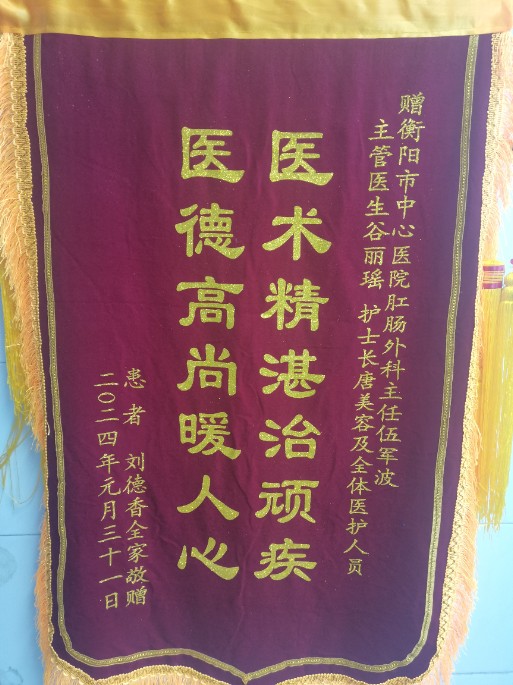 赠衡阳市中心医院肛肠外科主任伍军波
主管医生谷丽瑶 护士长唐美容及全体医护人员
医术精湛治顽疾
医德高尚暖人心
患者 刘德香全家敬赠
二〇二四年元月三十一日